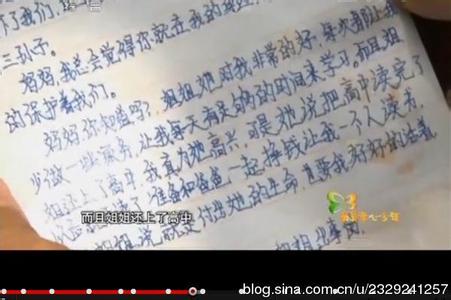 了我们,
三孙子。
妈妈,我总会觉得你就在我的
的保护着我们。
妈妈你知道吗?姐姐她对我非常的好,每次都
少做一些家务,让我每天有足够的时间来学习。而且姐
姐还上了高中,我真为她高兴,可是她说把高中读完了
准备和爸爸一起挣钱让我一个人读书,
姐姐说就是付出她的生命,也要我好好的活着
而且姐姐还上了高中
blog.sina.com.cn/u/2329241257